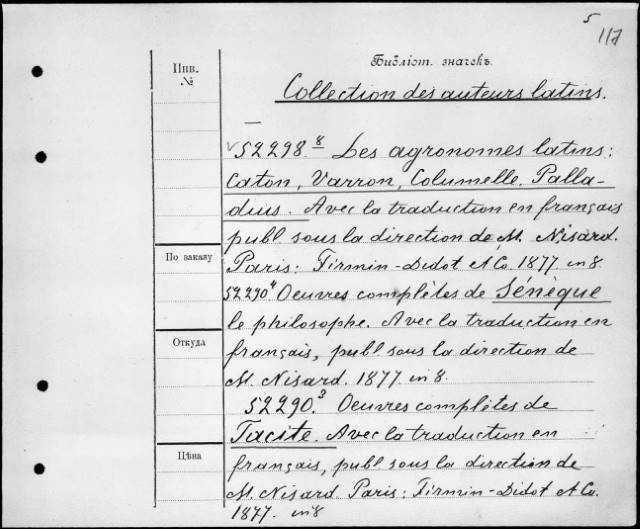 5
117
Инв.
№
Библіот. значекъ.
Collection des auteurs latins.
—
√52298.⁸ Les agronomes latins:
Caton, Varron, Columelle. Palla-
dius. Avec la traduction en français
publ sous la direction de M. Nisard.
По заказу
Paris: Firmin-Didot & Co. 1877. in 8.
52290⁴ Oeuvres complètes de Sénèque
le philosophe. Avec la traduction en
Откуда
français, publ sous la direction de
M. Nisard. 1877. in 8.
52290.³ Oeuvres complètes de
Tacite. Avec la traduction en
Цѣна
français, publ sous la direction de
M. Nisard. Paris: Firmin-Didot & Co.
1877. in 8